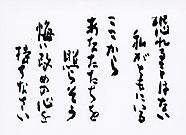 恐れることはない
私がともにいる
ここから
あなたたちを
照らそう
悔い改めの心を
持ちなさい